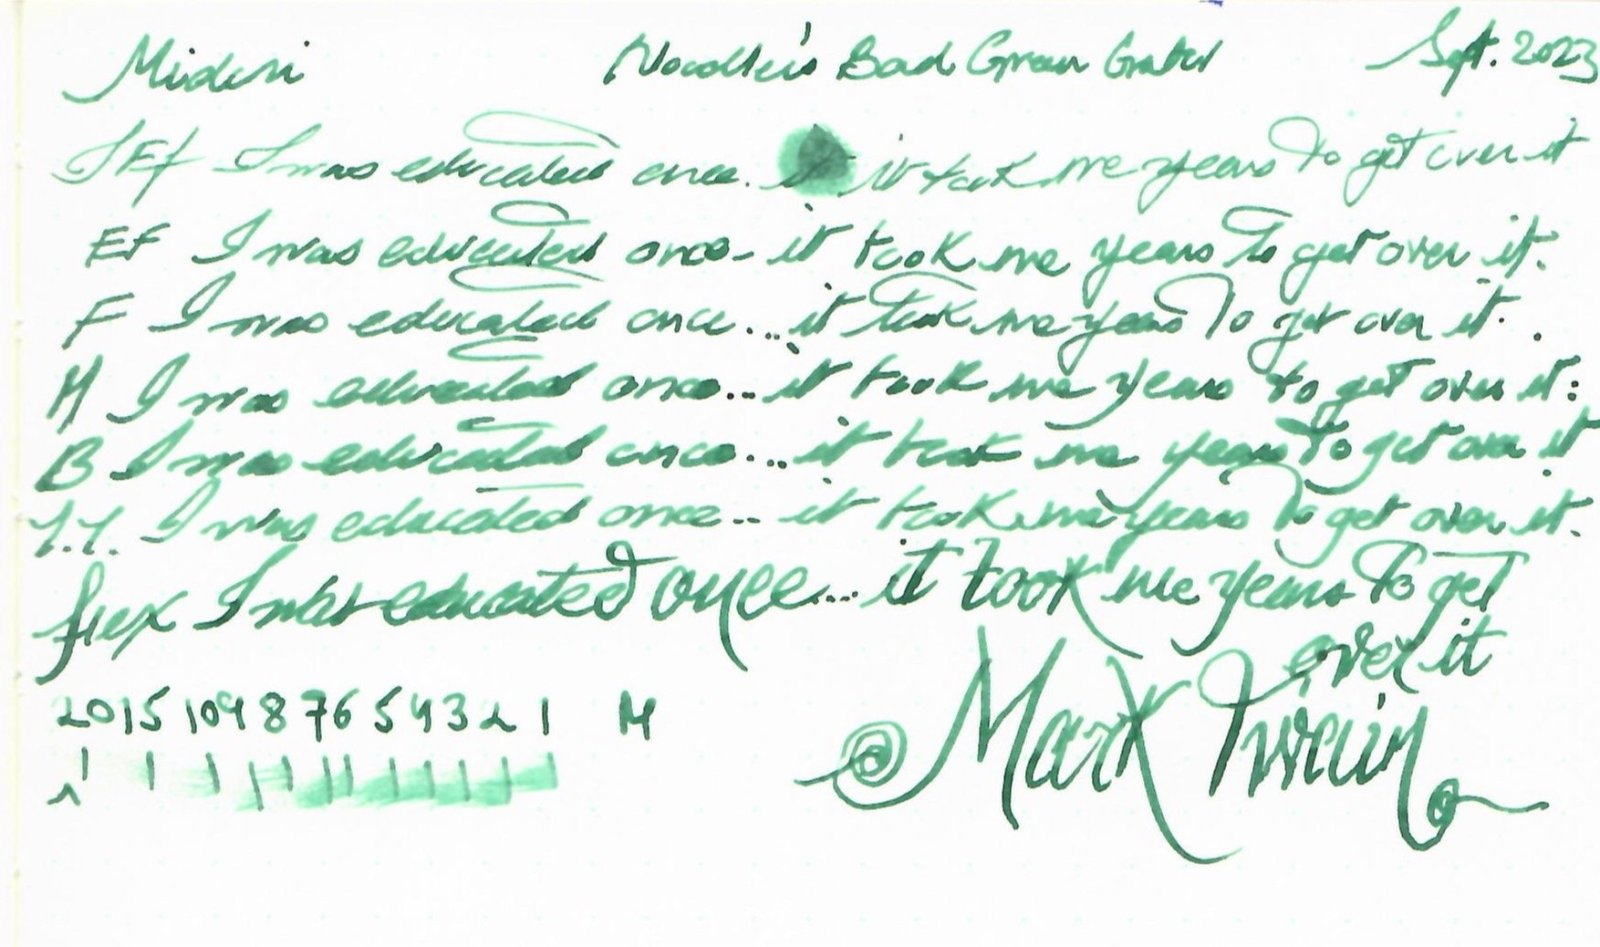 Midori Noodler's Bad Green Gator Sept. 2023
JEF I was educated once. it took me years to get over it
EF I was educated once- it took me years to get over it.
F I was educated once... it took me years to get over it.
M I was educated once... it took me years to get over it.
B I was educated once... it took me years to get over it
J.J. I was educated once... it took me years to get over it.
flex I was educated once... it took me years to get
over it
20 15 10 9 8 7 6 5 4 3 2 1 M
Mark Twain